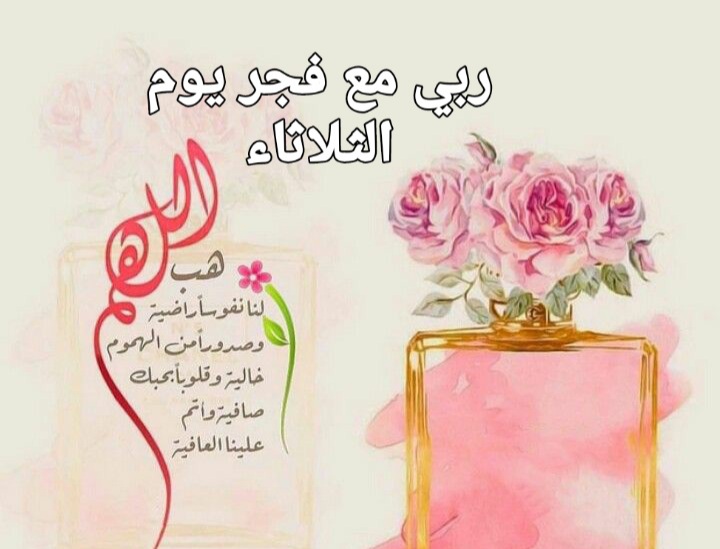 ربي مع فجر يوم
الثلاثاء
اللهم
هب
لنا نفوساً راضية
وصدوراً من الهموم
خالية وقلوباً بحبك
صافية وأتم
علينا العافية